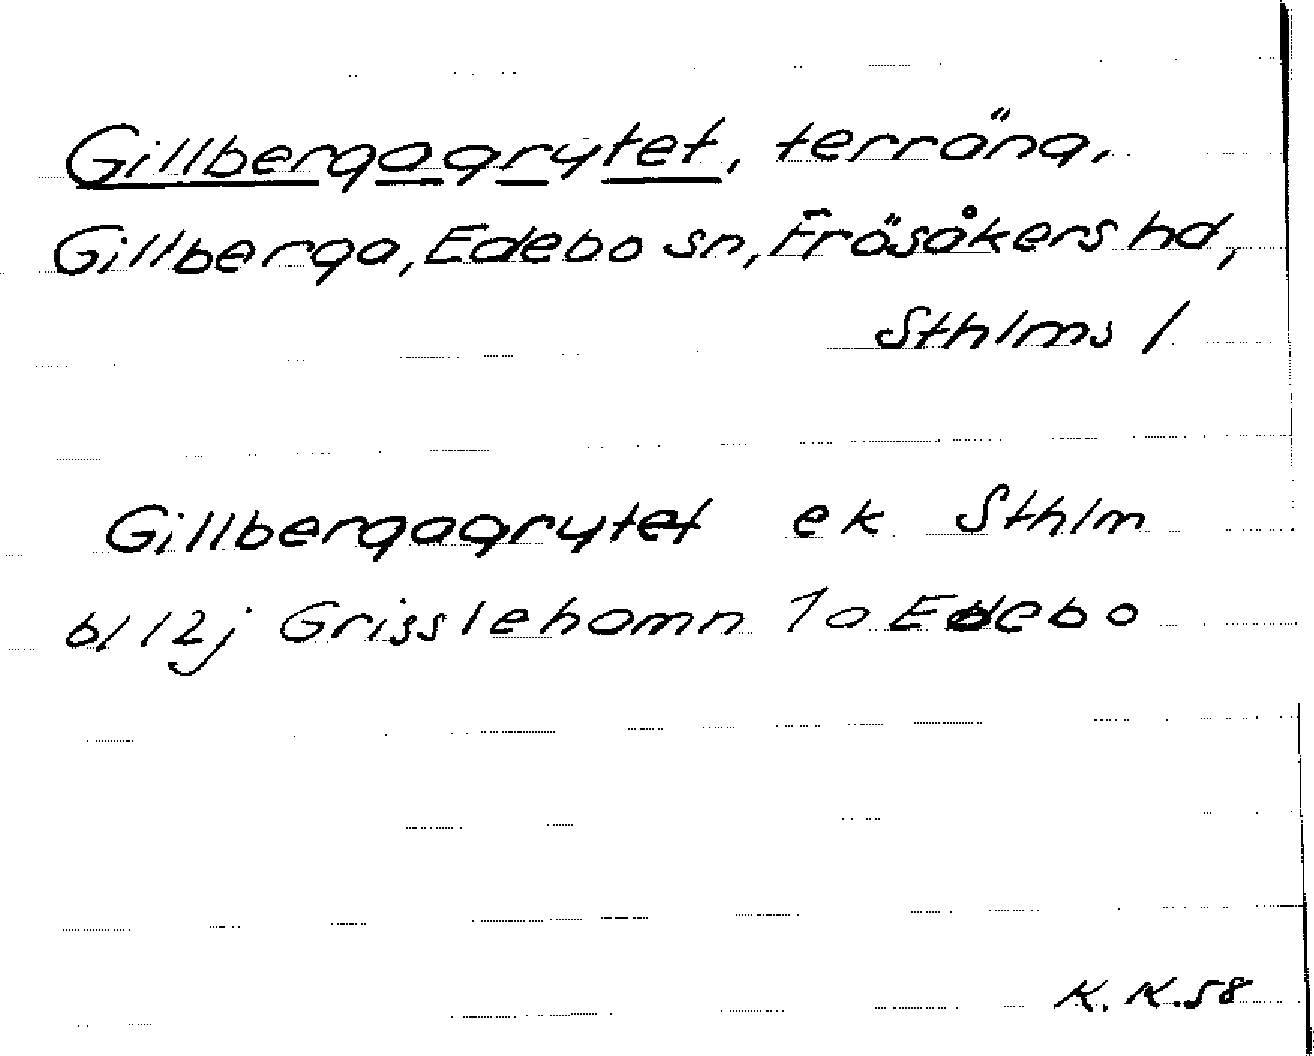 Gillbergagrytet, terräng,
Gillberga, Edebo sn, Frösåkers hd,
Sthlms l
Gillbergagrytet ek Sthlm
bl 12j Grisslehamn 1a Edebo
K. K. 58